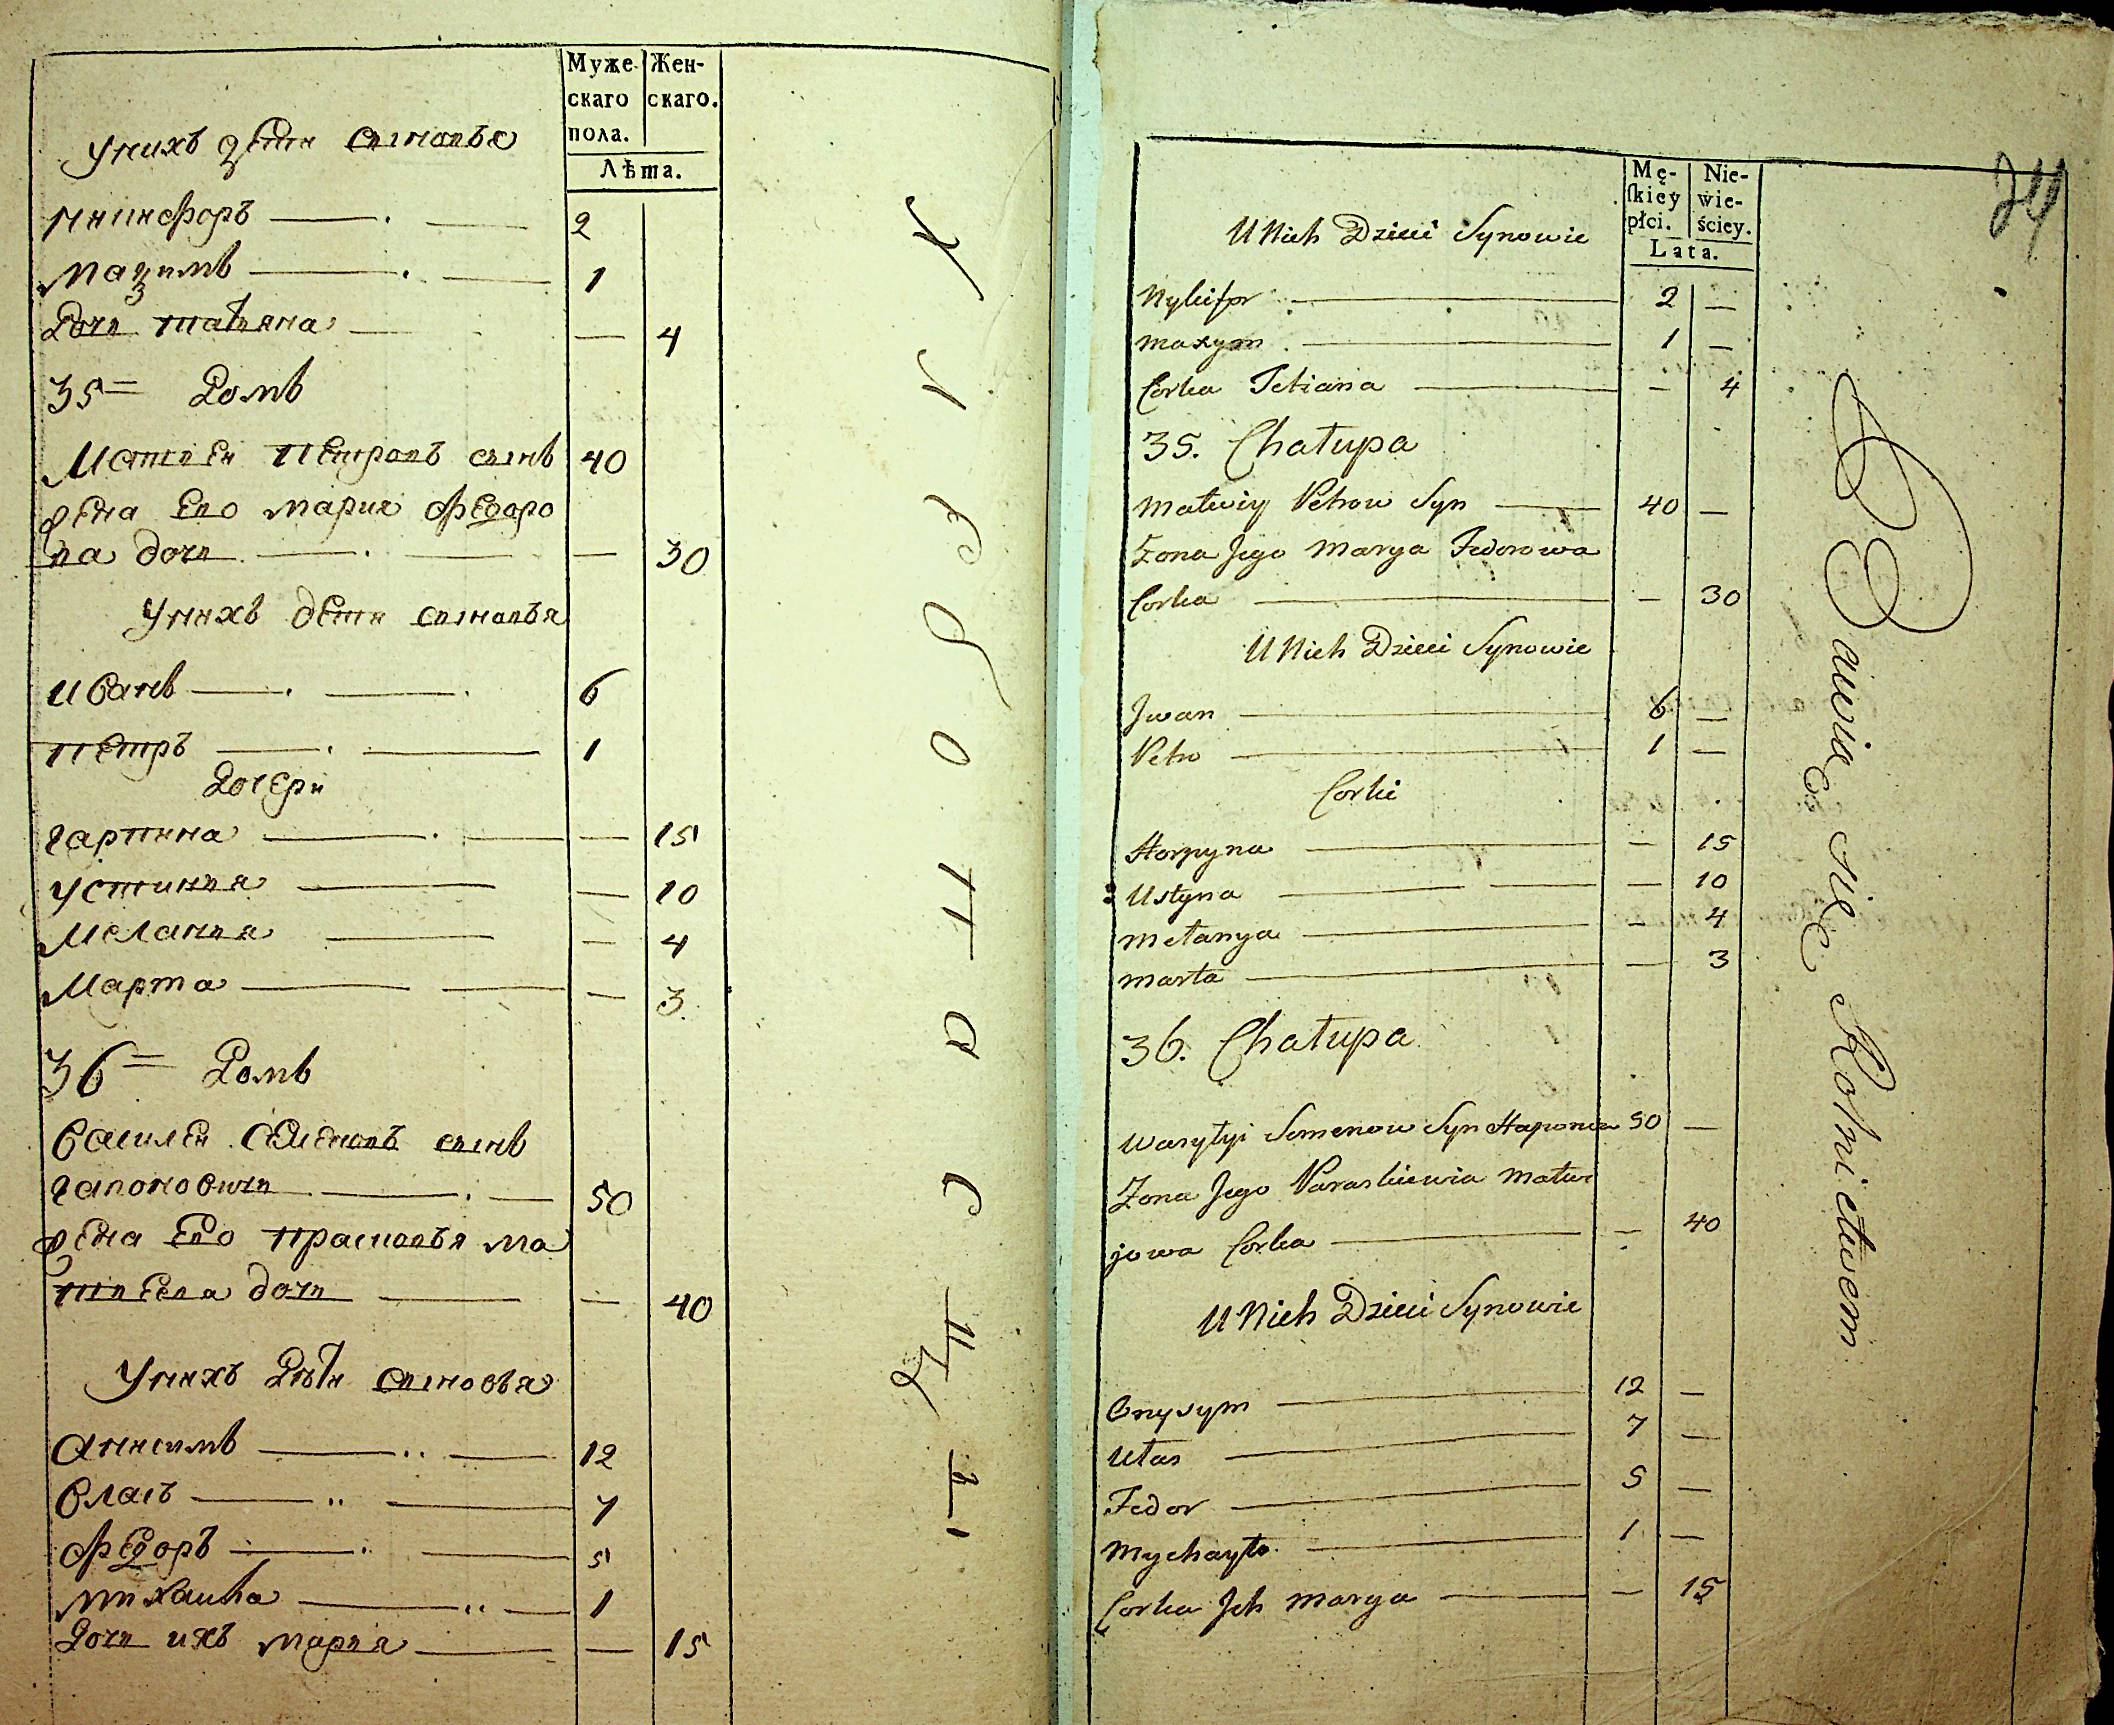 Муже-
скаго
пола.
Жен-
скаго.
Лѣта.
Унихъ дети сыновья
Никифоръ 2
Мазимъ 1
Дочь татьяна — 4
35 = Домъ
Матвеи Петровъ сынъ 40
жена Его Мария Федоро
ва дочь — 30
Унихъ дети сыновья
Иванъ 6
Петръ 1
Дочери
Гарпина — 15
Устинья — 10
Меланья — 4
Марта — 3
36 = Домъ
Василеи Семеновъ сынъ
Гапоновичь 50
жена Его Прасковья Ма
твеева дочь — 40
Унихъ Дѣти сыновья
Анисимъ 12
Власъ 7
Федоръ 5
Михаила 1
Дочь ихъ Марья — 15
24
Mę-
ſkiey
płci.
Nie-
wie-
ściey.
Lata.
U Nich Dzieci Synowie
Nykifor 2 —
Maxym 1 —
Corka Tetiana — 4
35. Chałupa
Matwiy Petrow Syn 40 —
Zona Jego Marya Fedorowa
Corka — 30
U Nich Dzieci Synowie
Jwan 6 —
Petro 1 —
Corki
Horpyna — 15
Ustyna — 10
Mełanya — 4
Marta — 3
36. Chałupa
Wasylyi Semenow Syn 50 —
Zona Jego Paraskiewia Matwi
jowa Corka — 40
U Nich Dzieci Synowie
Onysym 12 —
Ułas 7 —
Fedor 5 —
Mychayło 1 —
Corka Jch Marya — 15
Bawią się Rolnictwem